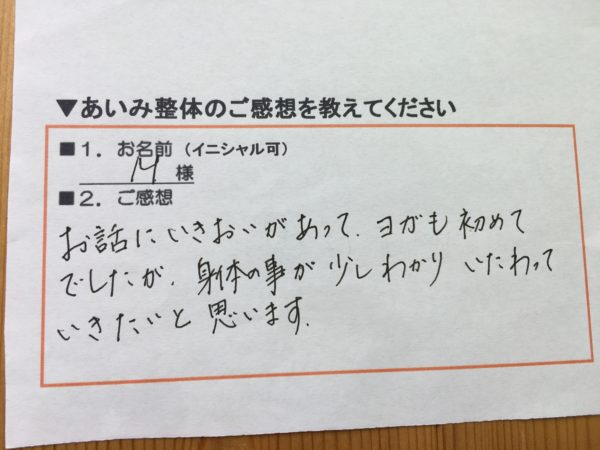 ▼あいみ整体のご感想を教えてください
■1. お名前（イニシャル可）
M 様
■2. ご感想
お話にいきおいがあって、ヨガも初めて
でしたが、身体の事が少しわかりいたわって
いきたいと思います。